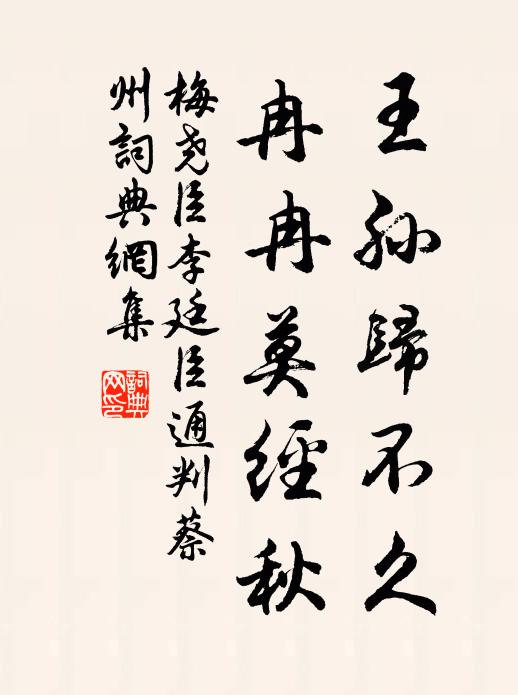 王孫歸不久
冉冉莫經秋
梅堯臣李廷臣通判蔡
州詞典網集
詞典
网印